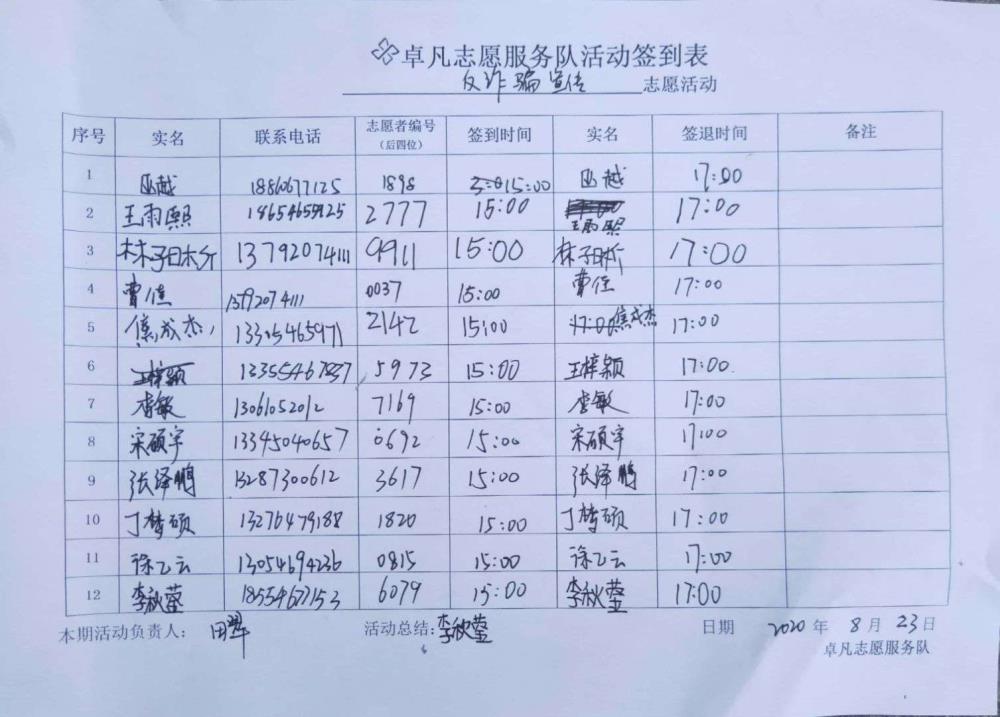 卓凡志愿服务队活动签到表
反诈骗宣传 志愿活动
序号 实名 联系电话 志愿者编号(后四位) 签到时间 实名 签退时间 备注
1 巫越 18860677125 1898 15:00 巫越 17:00
2 王雨熙 18654659125 2777 15:00 王雨熙 17:00
3 林子日析 13792074111 9911 15:00 林子日析 17:00
4 曹佳 13792074111 0037 15:00 曹佳 17:00
5 焦成杰 13305465971 2142 15:00 17:00 焦成杰 17:00
6 王梓颖 5973 15:00 王梓颖 17:00
7 李敏 13061052012 7169 15:00 李敏 17:00
8 宋硕宇 13345040657 0692 15:00 宋硕宇 17:00
9 张泽鹏 13287300612 3617 15:00 张泽鹏 17:00
10 丁梦硕 13276479188 1820 15:00 丁梦硕 17:00
11 徐乙云 13054694236 0815 15:00 徐乙云 17:00
12 李秋莹 18554677153 6079 15:00 李秋莹 17:00
本期活动负责人: 田翠 活动总结: 李秋莹 日期 2020 年 8 月 23 日
卓凡志愿服务队